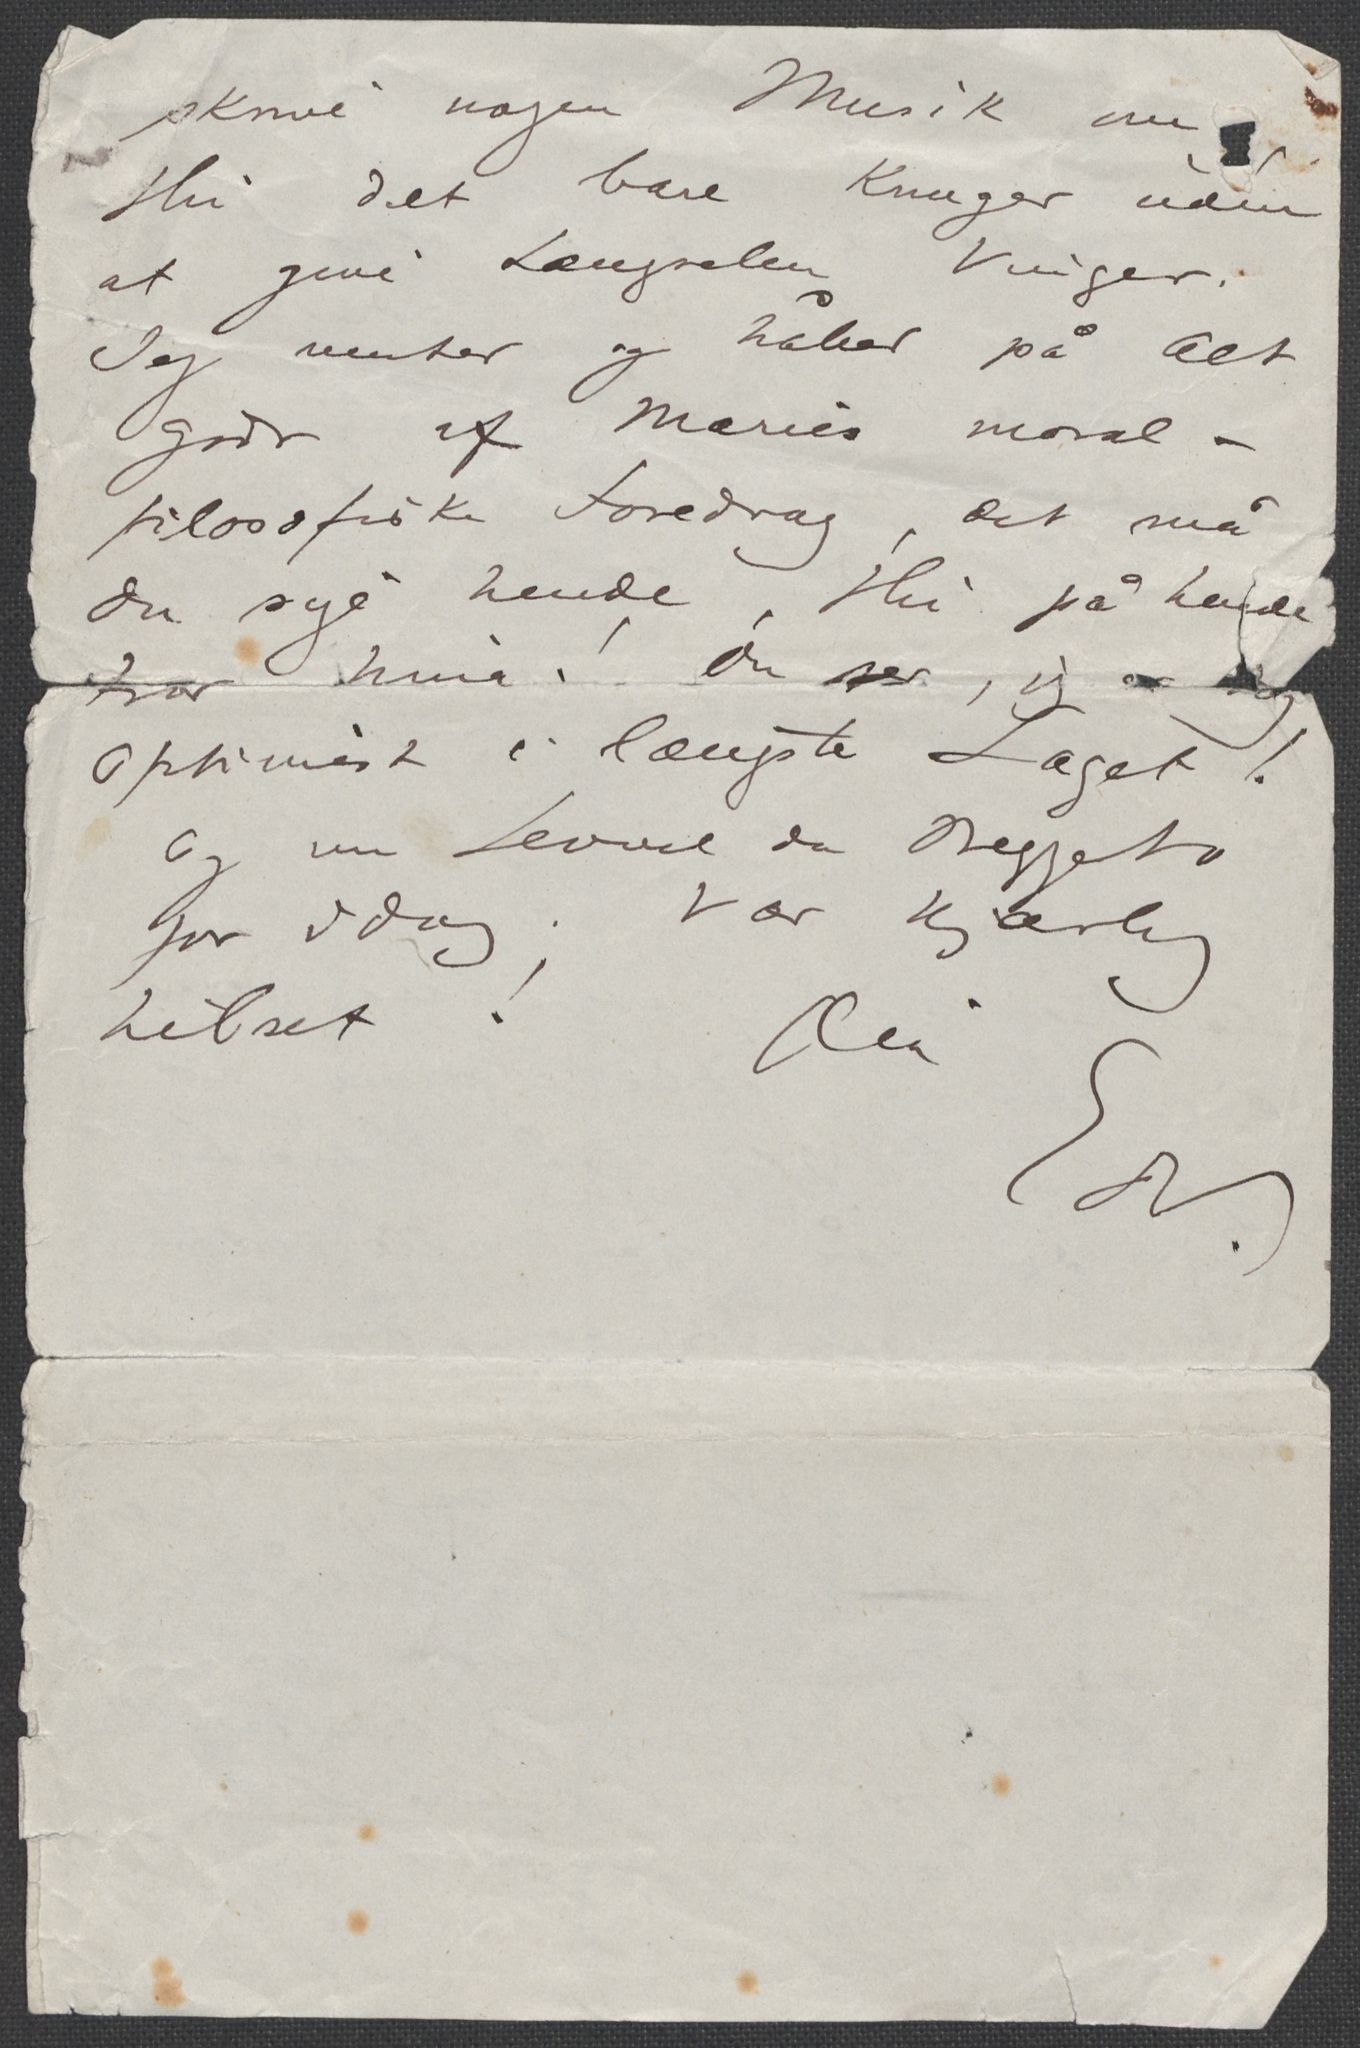 skrive nogen Musik om,
thi det bare knuger uden
at give Længselen Vinger.
Jeg venter og håber på alt
godt af Maries moral-
filosofiske Foredrag, det må
du sige hende, thi på hende
tror hun! Du ser, jeg er
optimist i længste Laget!
Og nu Levvel da begge to
for idag; Vær kjærlig
hilset! Din